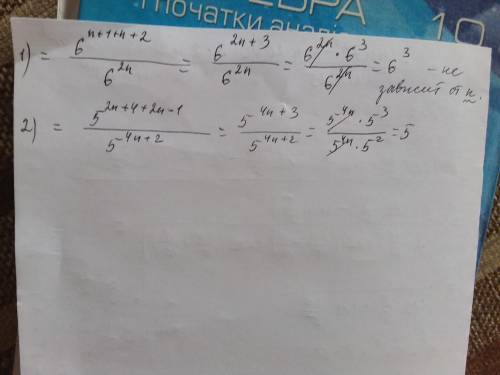 ЕБРА
І ПОЧАТКИ АНАЛІ
10
1) = 6^{n+1+n+2} / 6^{2n} = 6^{2n+3} / 6^{2n} = 6^{2n} · 6^3 / 6^{2n} = 6^3 - не
зависит от n.
2) = 5^{2n+4+2n-1} / 5^{-4n+2} = 5^{-4n+3} / 5^{4n+2} = 5^{-4n} · 5^3 / 5^{4n} · 5^2 = 5